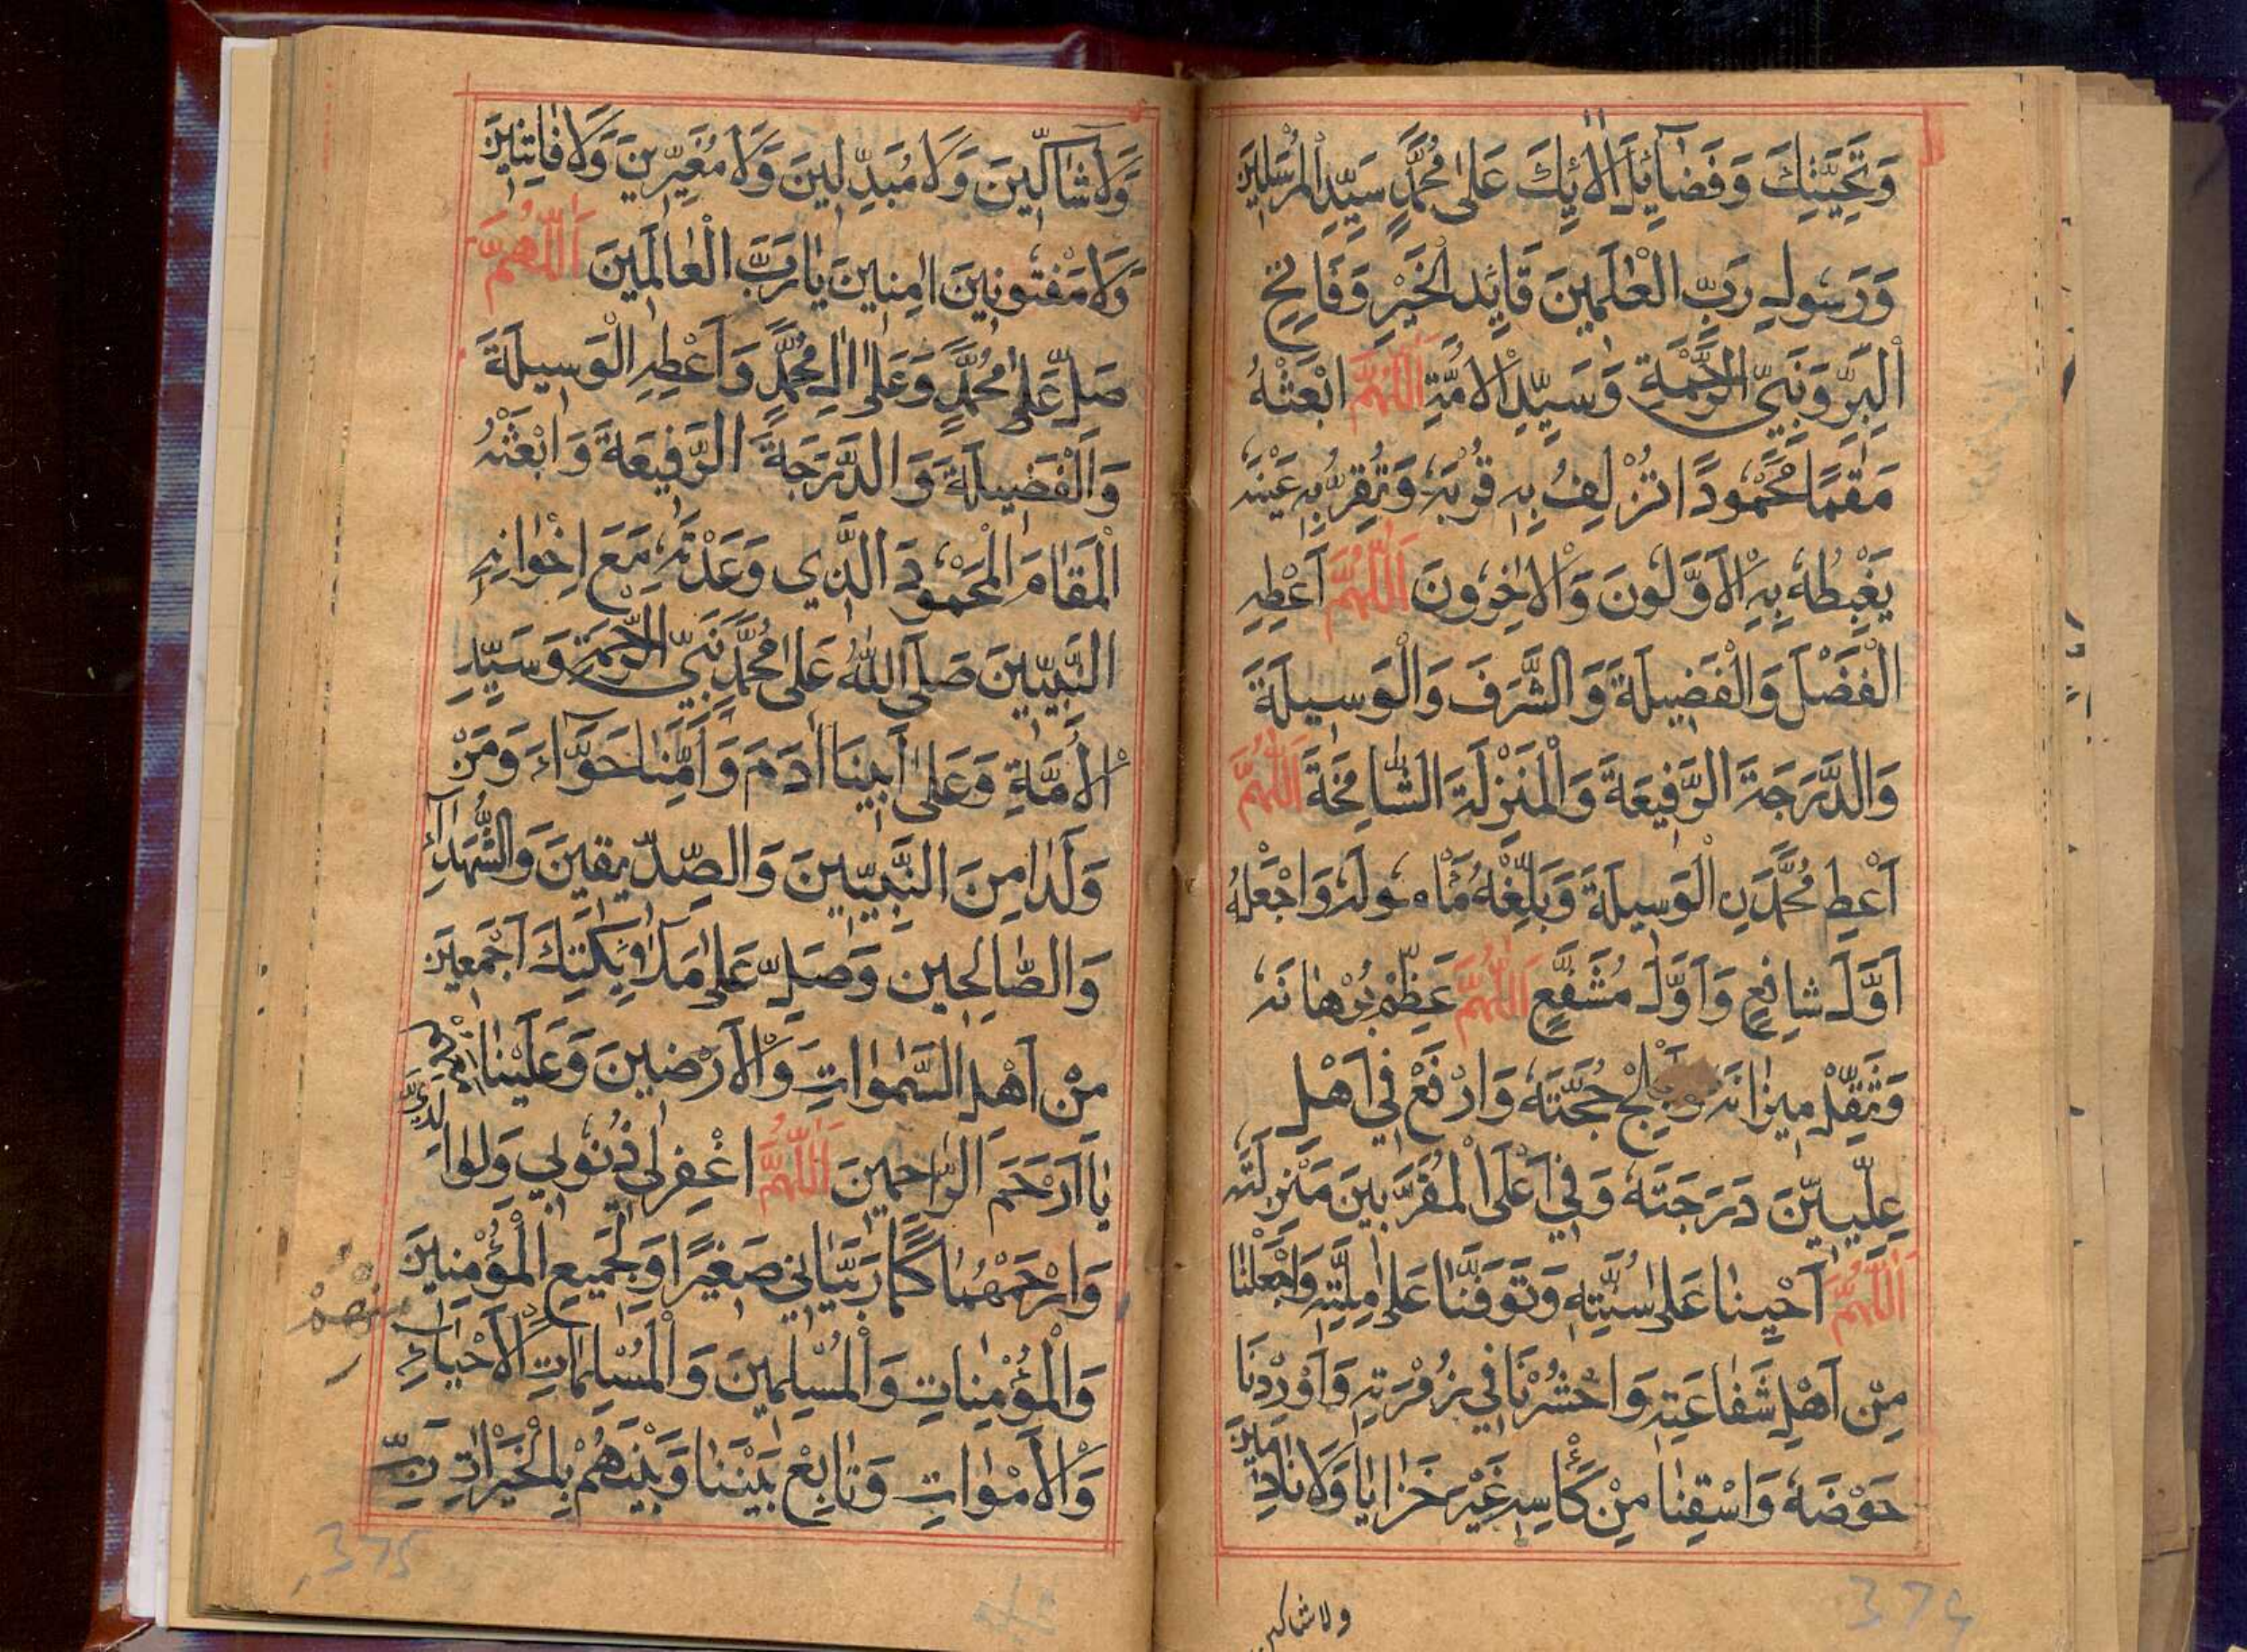 وَتَحِيَّتِكَ وَفَضَآئِلَ اٰلَآئِكَ عَلٰى مُحَمَّدٍ سَيِّدِ الْمُرْسَلِيْنَ
وَرَسُولِ رَبِّ الْعٰلَمِيْنَ قَآئِدِ الْخَيْرِ وَفَاتِحِ
الْبِرِّ وَنَبِيِّ الرَّحْمَةِ وَسَيِّدِ الْاُمَّةِ اَللّٰهُمَّ ابْعَثْهُ
مَقٰمًا مَّحْمُودًا تُزْلِفُ بِهٖ قُرْبَهٗ وَتُقِرُّ بِهٖ عَيْنَهٗ
يَغْبِطُهٗ بِهِ الْاَوَّلُونَ وَالْاٰخِرُونَ اَللّٰهُمَّ اَعْطِهِ
الْفَضْلَ وَالْفَضِيلَةَ وَالشَّرَفَ وَالْوَسِيلَةَ
وَالدَّرَجَةَ الرَّفِيعَةَ وَالْمَنْزِلَةَ الشَّامِخَةَ اَللّٰهُمَّ
اَعْطِ مُحَمَّدَنِ الْوَسِيلَةَ وَبَلِّغْهُ مَاْمُولَهٗ وَاجْعَلْهُ
اَوَّلَ شَافِعٍ وَاَوَّلَ مُشَفَّعٍ اَللّٰهُمَّ عَظِّمْ بُرْهَانَهٗ
وَثَقِّلْ مِيزَانَهٗ وَاَبْلِجْ حُجَّتَهٗ وَارْفَعْ فِي اَهْلِ
عِلِّيِّيْنَ دَرَجَتَهٗ وَفِي اَعْلَى الْمُقَرَّبِينَ مَنْزِلَتَهٗ
اَللّٰهُمَّ اَحْيِنَا عَلٰى سُنَّتِهٖ وَتَوَفَّنَا عَلٰى مِلَّتِهٖ وَاجْعَلْنَا
مِنْ اَهْلِ شَفَاعَتِهٖ وَاحْشُرْنَا فِي زُمْرَتِهٖ وَاَوْرِدْنَا
حَوْضَهٗ وَاسْقِنَا مِنْ كَأْسِهٖ غَيْرَ خَزَايَا وَلَا نَادِمِيْنَ
ولا شاكين
374
وَلَا شَآكِّيْنَ وَلَا مُبَدِّلِينَ وَلَا مُغَيِّرِينَ وَلَا فَاتِنِيْنَ
وَلَا مَفْتُونِينَ اٰمِينَ يَا رَبَّ الْعَالَمِيْنَ اَللّٰهُمَّ
صَلِّ عَلٰى مُحَمَّدٍ وَعَلٰى اٰلِ مُحَمَّدٍ وَاَعْطِهِ الْوَسِيلَةَ
وَالْفَضِيلَةَ وَالدَّرَجَةَ الرَّفِيعَةَ وَابْعَثْهُ
الْمَقَامَ الْمَحْمُودَ الَّذِي وَعَدْتَهٗ مَعَ اِخْوَانِهِ
النَّبِيِّينَ صَلَّى اللّٰهُ عَلٰى مُحَمَّدٍ نَبِيِّ الرَّحْمَةِ وَسَيِّدِ
الْاُمَّةِ وَعَلٰى اَبِينَا اٰدَمَ وَاُمِّنَا حَوَّآءَ وَمَنْ
وَلَدَا مِنَ النَّبِيِّينَ وَالصِّدِّيقِينَ وَالشُّهَدَآءِ
وَالصَّالِحِينَ وَصَلِّ عَلٰى مَلٰٓئِكَتِكَ اَجْمَعِيْنَ
مِنْ اَهْلِ السَّمٰوَاتِ وَالْاَرْضِينَ وَعَلَيْنَا مَعَهُمْ
يَا اَرْحَمَ الرَّاحِمِيْنَ اَللّٰهُمَّ اغْفِرْ لِي ذُنُوبِي وَلِوَالِدَيَّ
وَارْحَمْهُمَا كَمَا رَبَّيَانِي صَغِيْرًا وَلِجَمِيعِ الْمُؤْمِنِيْنَ
وَالْمُؤْمِنَاتِ وَالْمُسْلِمِيْنَ وَالْمُسْلِمَاتِ الْاَحْيَاءِ منهم
وَالْاَمْوَاتِ وَتَابِعْ بَيْنَنَا وَبَيْنَهُمْ بِالْخَيْرَاتِ رَبِّ
375